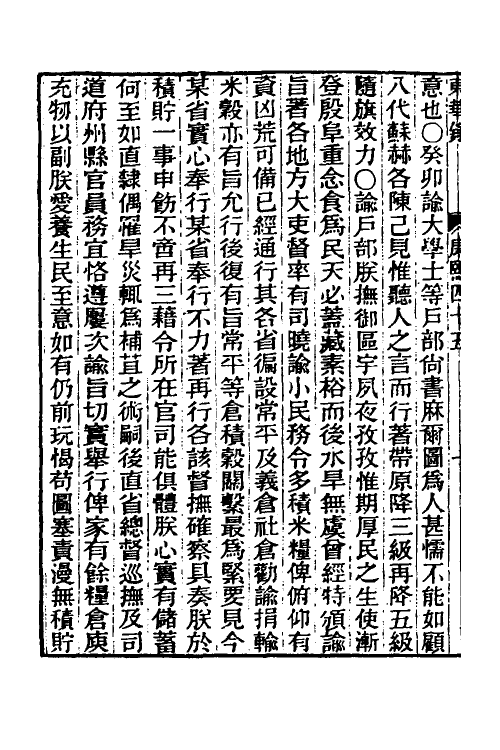 東華錄 康熙四十五 七
意也○癸卯諭大學士等戶部尚書麻爾圖爲人甚懦不能如顧
八代蘇赫各陳己見惟聽人之言而行著帶原降三級再降五級
隨旗效力○諭戶部朕撫御區宇夙夜孜孜惟期厚民之生使漸
登殷阜重念食爲民天必蓋藏素裕而後水旱無虞曾經特頒諭
旨著各地方大吏督率有司曉諭小民務令多積米糧俾俯仰有
資凶荒可備已經通行其各省徧設常平及義倉社倉勸諭捐輸
米穀亦有旨允行後復有旨常平等倉積穀關繫最爲緊要見今
某省實心奉行某省奉行不力著再行各該督撫確察具奏朕於
積貯一事申飭不啻再三藉令所在官司能俱體朕心實有儲蓄
何至如直隸偶罹旱災輒爲補苴之術嗣後直省總督巡撫及司
道府州縣官員務宜恪遵屢次諭旨切實舉行俾家有餘糧倉庾
充牣以副朕愛養生民至意如有仍前玩愒苟圖塞責漫無積貯